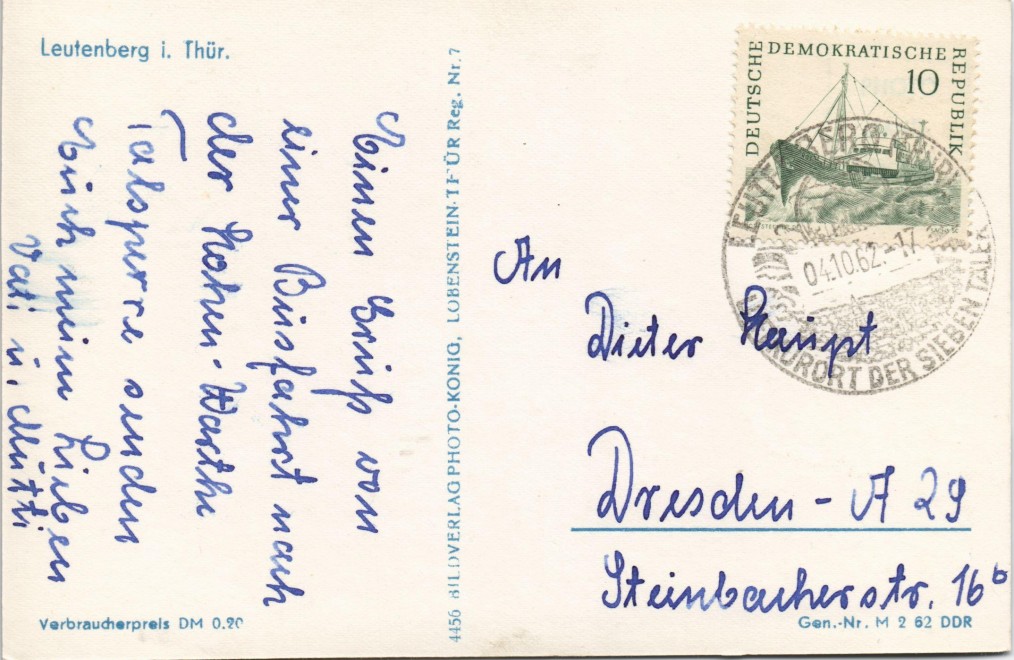 Leutenberg i. Thür.
Einen Gruß von
einer Busfahrt nach
der Hohen-Warthe
Talsperre senden
Euch meine Lieben
Vati u. Mutti
Verbraucherpreis DM 0.20
4456 BILDVERLAG PHOTO-KÖNIG, LOBENSTEIN-THÜR Reg. Nr. 7
DEUTSCHE DEMOKRATISCHE REPUBLIK
10
LEUTENBERG (THÜR)
04.10.62.-17
KURORT DER SIEBEN TÄLER
An
Dieter Haupt
Dresden - A 29
Steinbacherstr. 16b
Gen.-Nr. M 2 62 DDR